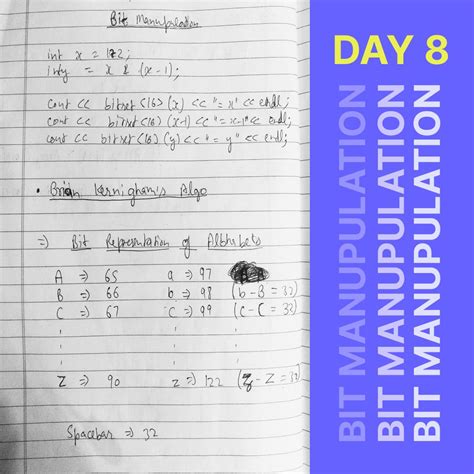 Bit Manupulation
int x = 172;
int y = x & (x-1);
cout << bitset<16>(x) << "= x" << endl;
cout << bitset<16>(x-1) << "= x-1" << endl;
cout << bitset<16>(y) << "= y" << endl;
• Brian Kernigham's Algo
=> Bit Representation of Albhabets
A => 65 a => 97
B => 66 b => 98 (b-B = 32)
C => 67 C => 99 (c-C = 32)
Z => 90 z => 122 (z-Z = 32)
Spacebar => 32
DAY 8
BIT MANUPULATION
BIT MANUPULATION
BIT MANUPULATION